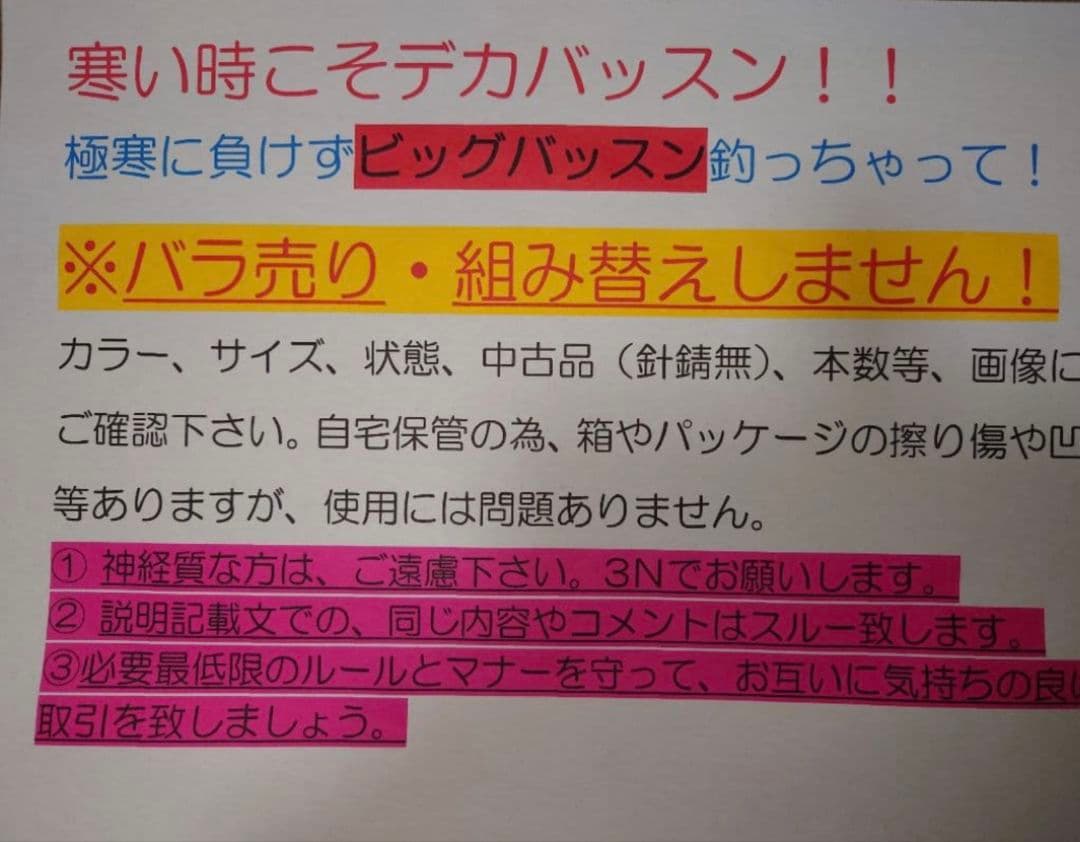 寒い時こそデカバッスン！！
極寒に負けずビッグバッスン釣っちゃって！
※バラ売り・組み替えしません！
カラー、サイズ、状態、中古品（針錆無）、本数等、画像に
ご確認下さい。自宅保管の為、箱やパッケージの擦り傷や凹
等ありますが、使用には問題ありません。
① 神経質な方は、ご遠慮下さい。3Nでお願いします。
② 説明記載文での、同じ内容やコメントはスルー致します。
③必要最低限のルールとマナーを守って、お互いに気持ちの良い
取引を致しましょう。